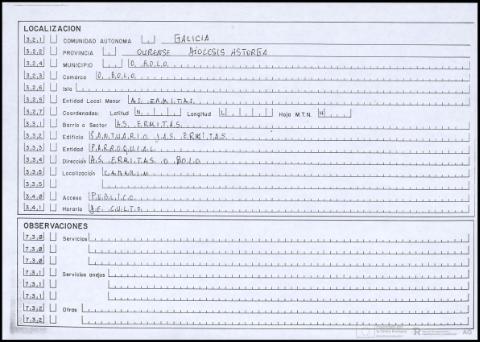 LOCALIZACION
3.2.1 COMUNIDAD AUTONOMA GALICIA
3.2.2 PROVINCIA OURENSE DIOCESIS ASTORGA
3.2.4 MUNICIPIO O BOLO
3.2.3 Comarca O BOLO
3.2.6 Isla
3.2.5 Entidad Local Menor AS ERMITAS
3.2.7 Coordenadas: Latitud N Longitud Hoja M.T.N.
3.3.1 Barrio o Sector AS ERMITAS
3.3.2 Edificio SANTUARIO DAS ERMITAS
3.3.3 Entidad PARROQUIAL
3.3.4 Dirección AS ERMITAS O BOLO
3.3.5 Localización CAMARIN
3.3.5
3.4.0 Acceso PUBLICO
3.4.1 Horario DE CULTO
OBSERVACIONES
7.3.0 Servicios
7.3.0
7.3.0
7.3.1 Servicios anejos
7.3.1
7.3.1
7.3.2 Otros
7.3.2